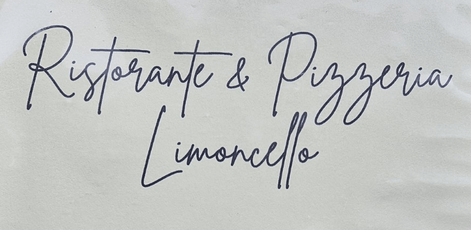 Ristorante & Pizzeria
Limoncello